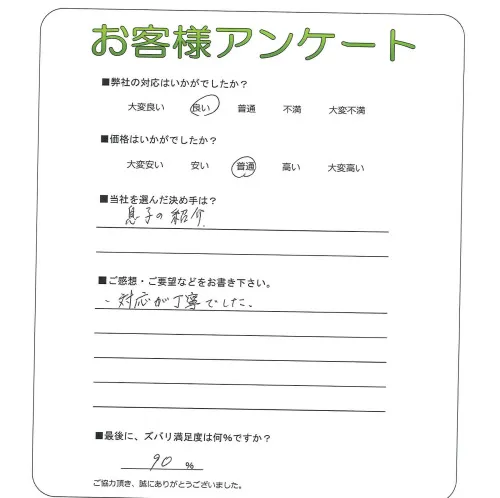 お客様アンケート
■弊社の対応はいかがでしたか？
大変良い 良い 普通 不満 大変不満
■価格はいかがでしたか？
大変安い 安い 普通 高い 大変高い
■当社を選んだ決め手は？
息子の紹介
■ご感想・ご要望などをお書き下さい。
・対応が丁寧でした。
■最後に、ズバリ満足度は何%ですか？
90 %
ご協力頂き、誠にありがとうございました。